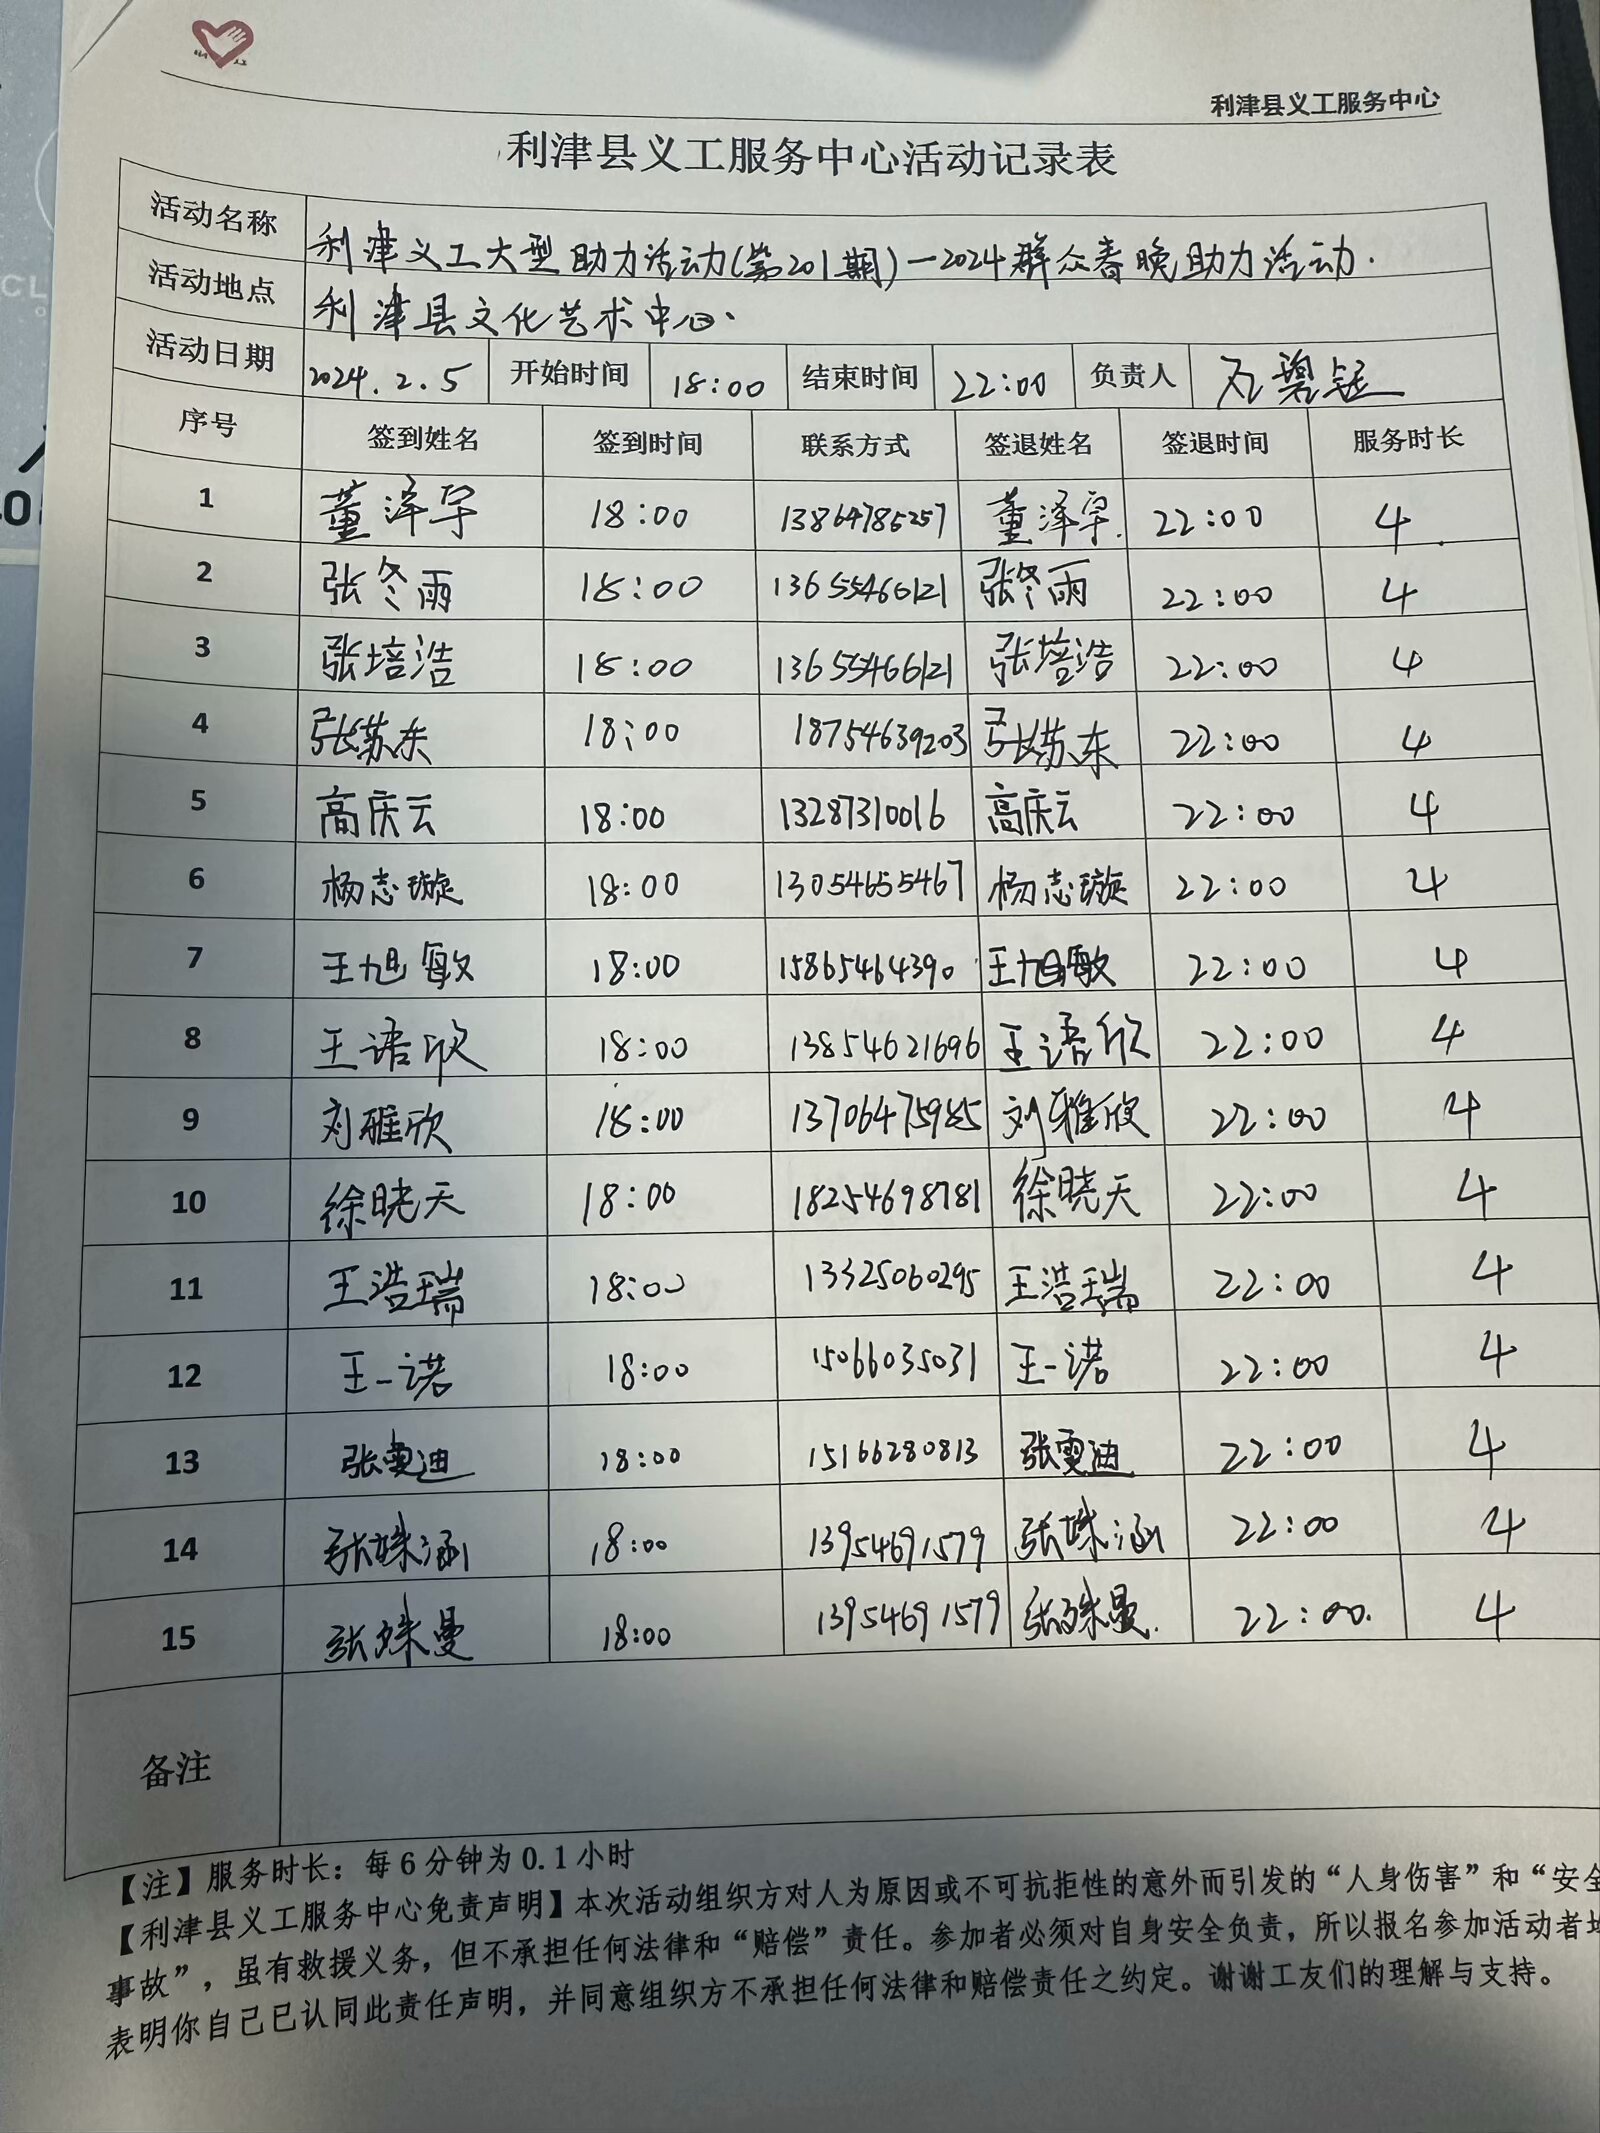 利津县义工服务中心
利津县义工服务中心活动记录表
活动名称 利津义工大型助力活动(第201期)—2024群众春晚助力活动.
活动地点 利津县文化艺术中心.
活动日期 2024.2.5 开始时间 18:00 结束时间 22:00 负责人
序号 签到姓名 签到时间 联系方式 签退姓名 签退时间 服务时长
1 董泽宇 18:00 13864785257 董泽宇. 22:00 4
2 张冬雨 18:00 13655466121 张冬雨 22:00 4
3 张培浩 18:00 13655466121 张培浩 22:00 4
4 张苏东 18:00 18754639203 张苏东 22:00 4
5 高庆云 18:00 13287310016 高庆云 22:00 4
6 杨志璇 18:00 13054655467 杨志璇 22:00 4
7 王旭敏 18:00 15865464390 王旭敏 22:00 4
8 王语欣 18:00 13854621696 王语欣 22:00 4
9 刘雅欣 18:00 13706475985 刘雅欣 22:00 4
10 徐晓天 18:00 18254698781 徐晓天 22:00 4
11 王浩瑞 18:00 13325060295 王浩瑞 22:00 4
12 王一诺 18:00 15066035031 王一诺 22:00 4
13 张雯迪 18:00 15166280813 张雯迪 22:00 4
14 张姝涵 18:00 13954691579 张姝涵 22:00 4
15 张姝曼 18:00 13954691579 张姝曼. 22:00. 4
备注
【注】服务时长：每6分钟为0.1小时
【利津县义工服务中心免责声明】本次活动组织方对人为原因或不可抗拒性的意外而引发的“人身伤害”和“安全
事故”，虽有救援义务，但不承担任何法律和“赔偿”责任。参加者必须对自身安全负责，所以报名参加活动者均
表明你自己已认同此责任声明，并同意组织方不承担任何法律和赔偿责任之约定。谢谢工友们的理解与支持。